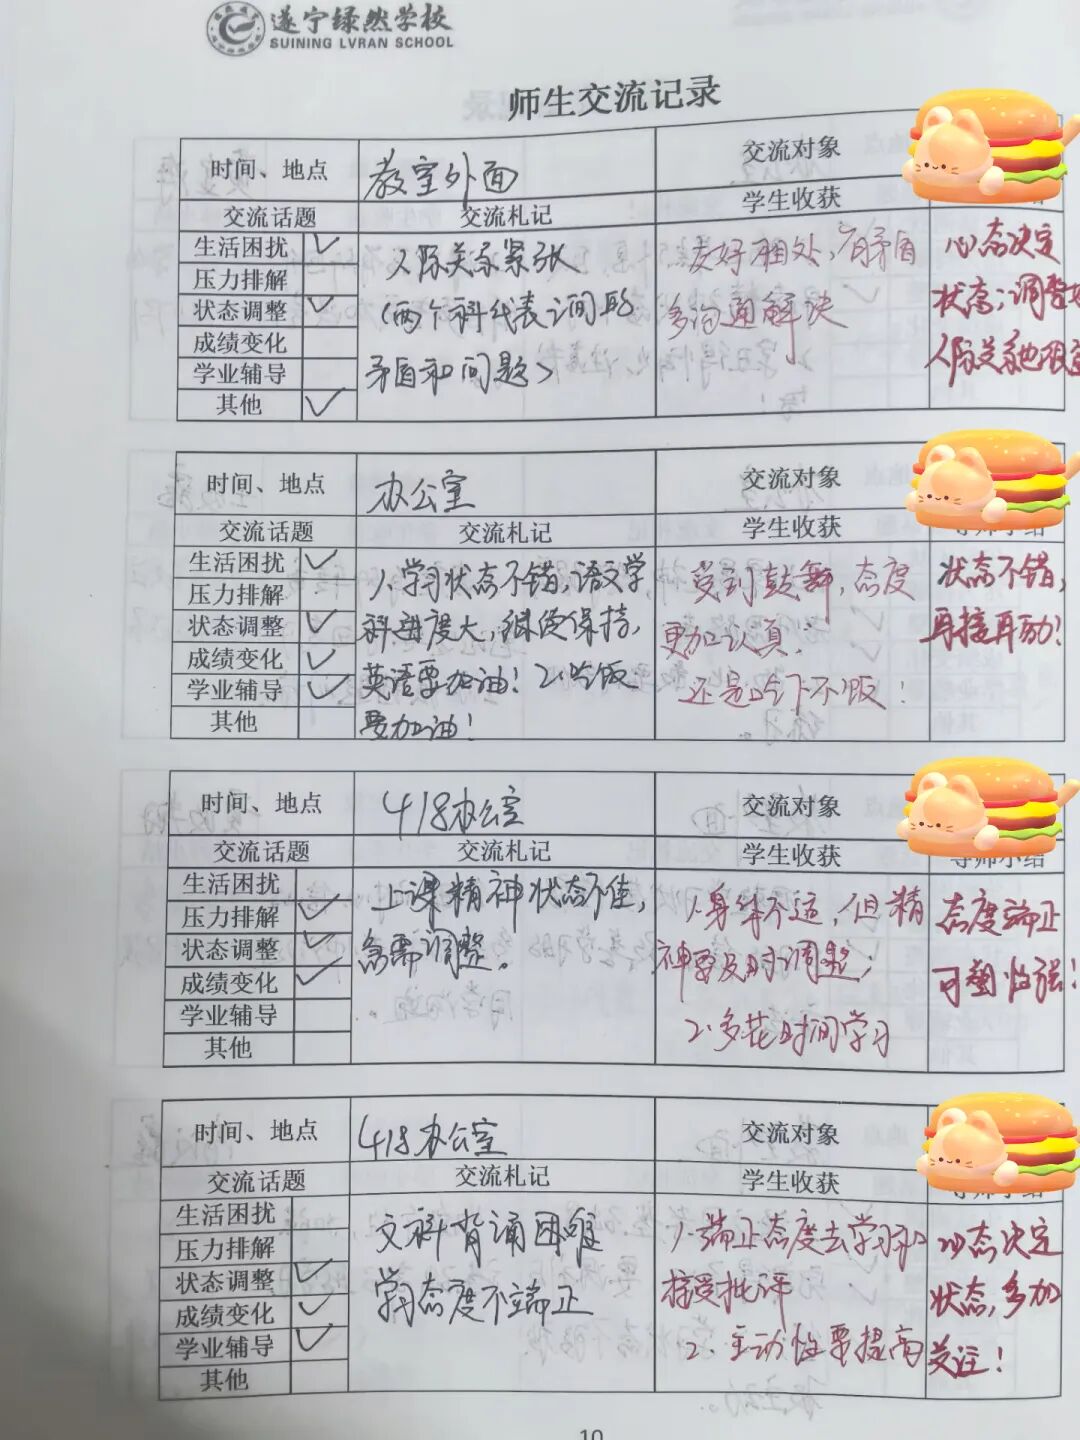 遂宁绿然学校
SUINING LVRAN SCHOOL
师生交流记录
时间、地点 教室外面 交流对象
交流话题 交流札记 学生收获
生活困扰 ✓
压力排解
状态调整 ✓
成绩变化
学业辅导
其他 ✓
人际关系紧张
(两个科代表之间的
矛盾和问题)
友好相处,有矛盾
多沟通解决
心态决定
状态;调整好
人际关系也很
时间、地点 办公室 交流对象
交流话题 交流札记 学生收获 导师小结
生活困扰 ✓
压力排解
状态调整 ✓
成绩变化 ✓
学业辅导 ✓
其他
1、学习状态不错,语文学
科进度大,继续保持,
英语要加油!2、吃饭
要加油!
受到鼓舞,态度
更加认真;
还是吃下不饭!
状态不错,
再接再励!
时间、地点 418办公室 交流对象
交流话题 交流札记 学生收获 导师小结
生活困扰
压力排解 ✓
状态调整 ✓
成绩变化 ✓
学业辅导
其他
上课精神状态不佳,
急需调整。
1、身体不适,但精
神要及时调整;
2、多花时间学习
态度端正
可塑性强!
时间、地点 418办公室 交流对象
交流话题 交流札记 学生收获 导师小结
生活困扰
压力排解
状态调整 ✓
成绩变化 ✓
学业辅导 ✓
其他
文科背诵困难
学习态度不端正
1、端正态度去学习和
接受批评
2、主动性要提高
心态决定
状态,多加
关注!
10